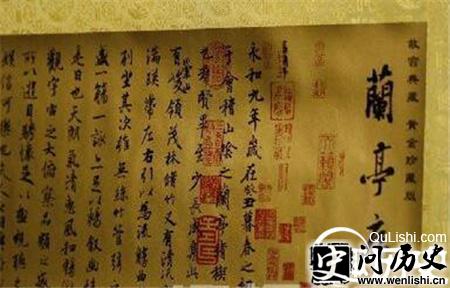 故宫典藏 黄金珍藏版
蘭亭序
永和九年歲在癸丑暮春之初
會稽山陰之蘭亭脩稧
事也羣賢畢至少長咸集此
有崇山峻領茂林脩竹又有清流
湍暎帶左右引以為流觴曲
列坐其次雖無絲竹管弦
盛一觴一詠亦足以暢叙幽
是日也天朗氣清惠風和暢
觀宇宙之大俯察品類之盛
所以遊目騁懷足以極視聽之
娛信可樂也夫人之相
QuLishi.com
问历史
www.wenlishi.cn